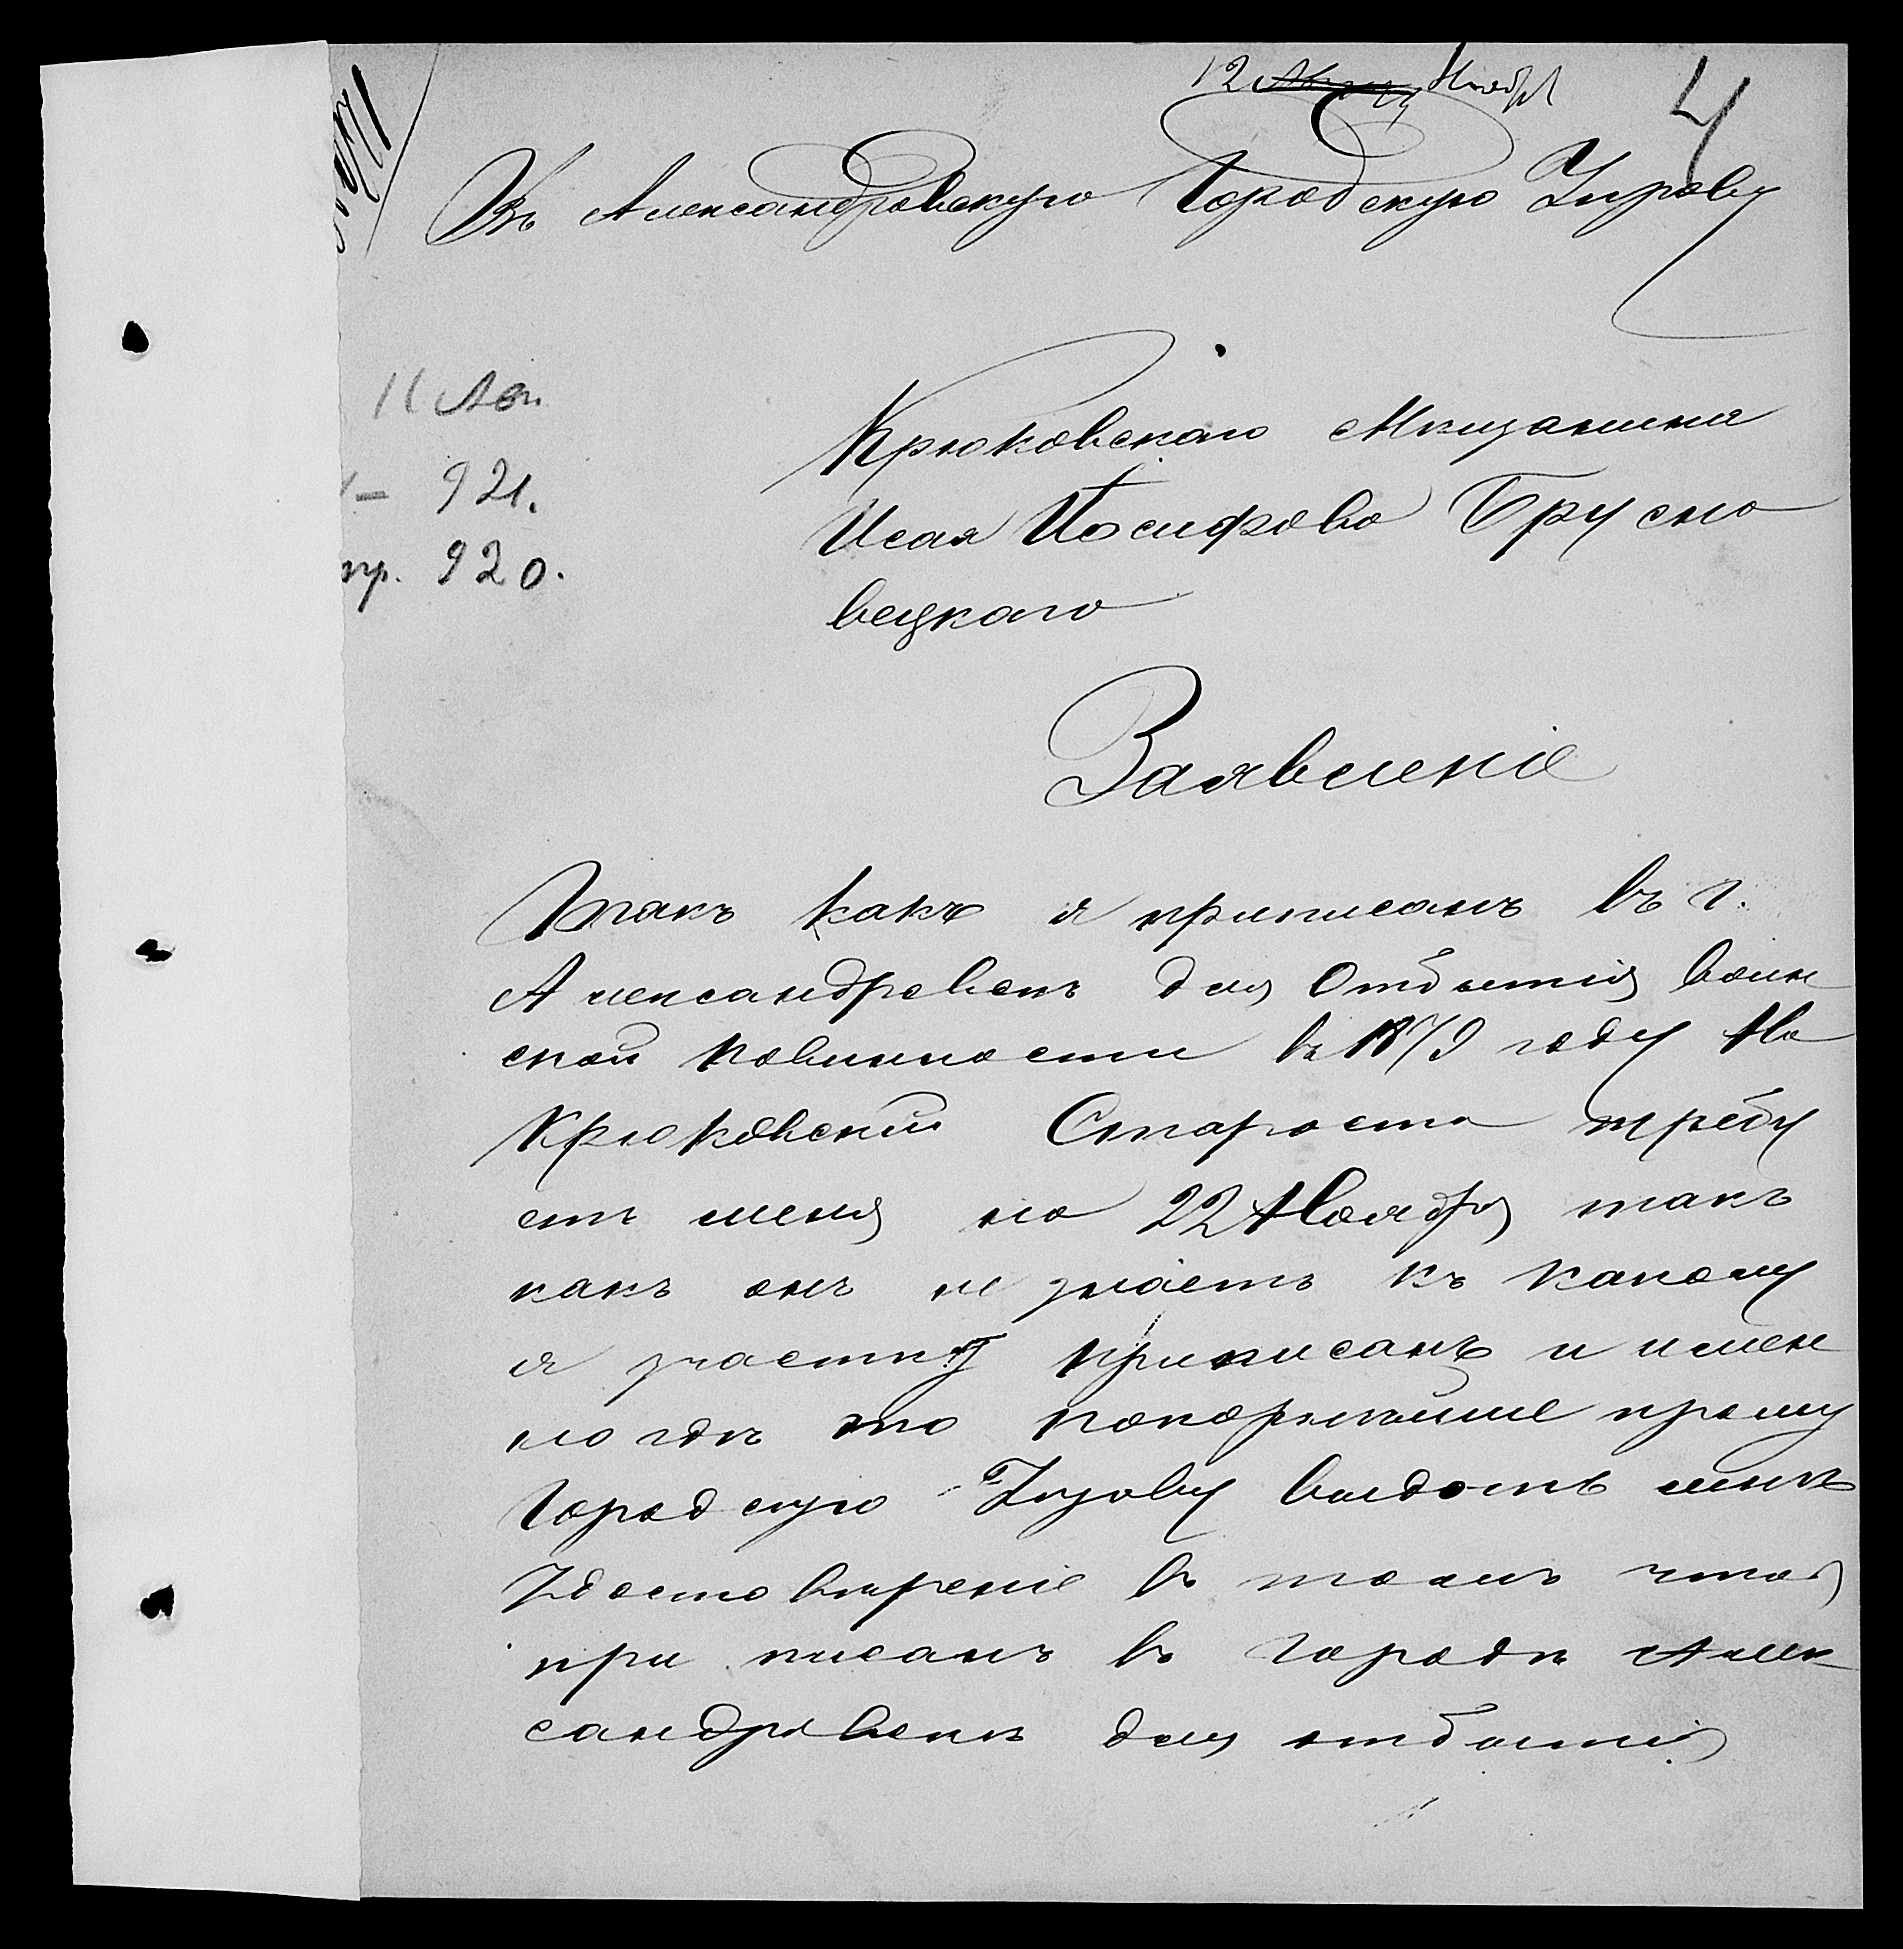 12 Ноября
4
Въ Александровскую Городскую Управу
11 Ав.
921.
пр. 920.
Крюковскаго Мещанина
Исая Иосифова Брусно
вецкаго
Заявленіе
Такъ какъ я приписанъ въ г.
Александровскѣ для Отбытія воин
ской повинности въ 1879 году Но
Крюковскій Староста требу
етъ меня на 22 Ноября такъ
какъ онъ не знаетъ къ какому
я участку приписанъ и имен
но гдѣ то покорнейше прошу
Городскую Управу выдать мнѣ
Удостовѣреніе въ томъ что я
при писанъ въ городѣ Алек
сандровскѣ для отбытія